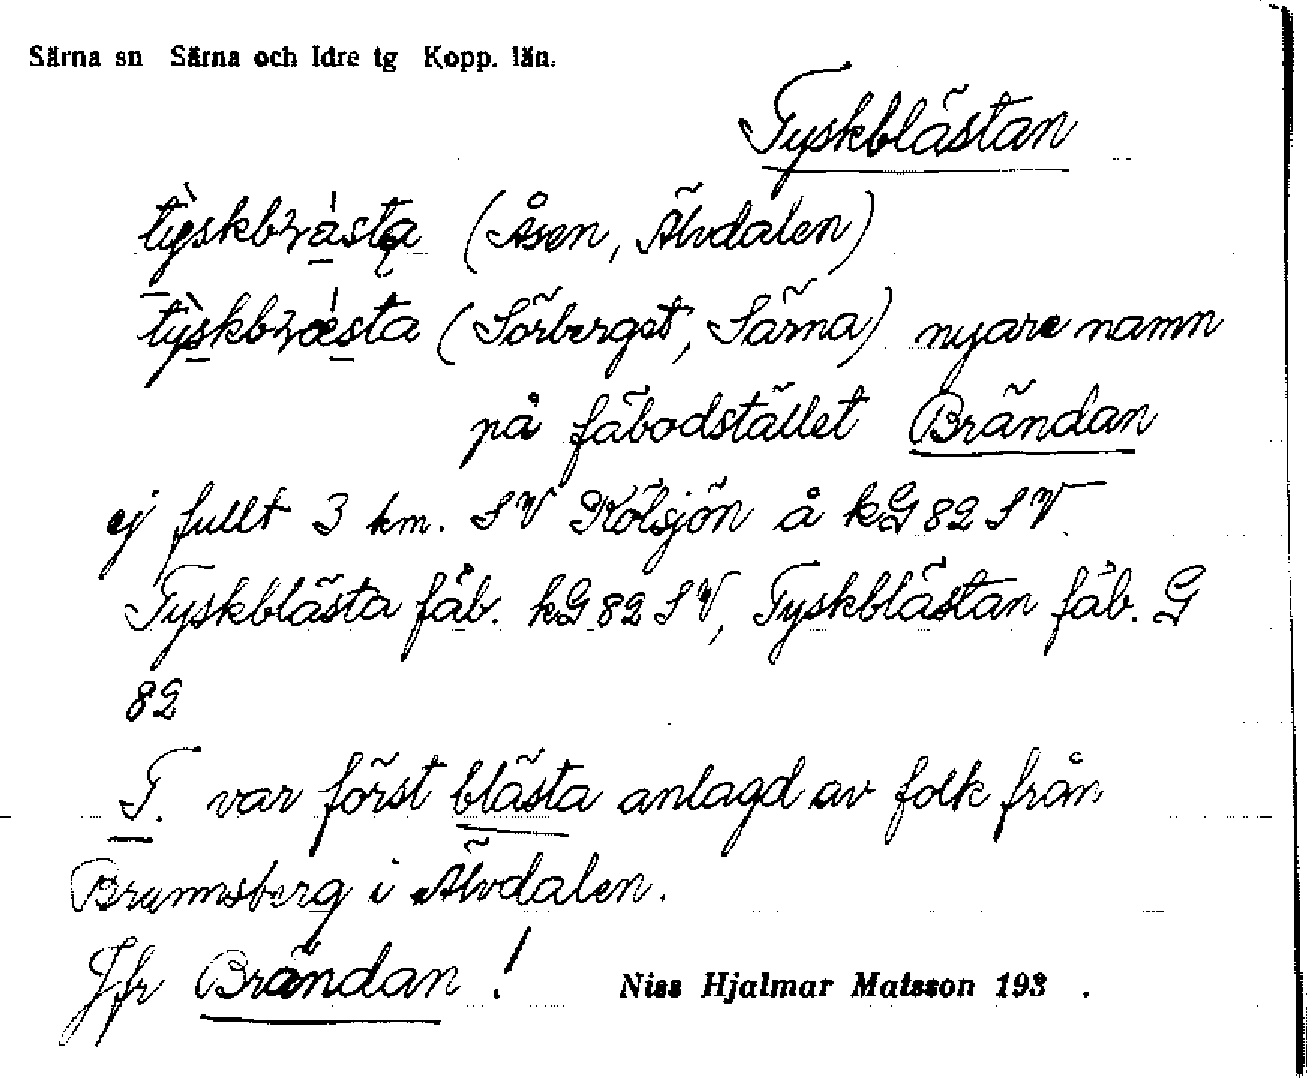 Särna sn Särna och Idre tg Kopp. län.
Tyskblästan
(Åsen, Älvdalen)
(Sörberget, Särna) nyare namn
på fäbodstället Brändan
ej fullt 3 km. SV Kölsjön å kG 82 SV.
Tyskblästa fäb. kG 82 SV, Tyskblästan fäb. G
82
T. var först blästa anlagd av folk från
Brunnsberg i Älvdalen.
Jfr Brändan!
Niss Hjalmar Matsson 193 .